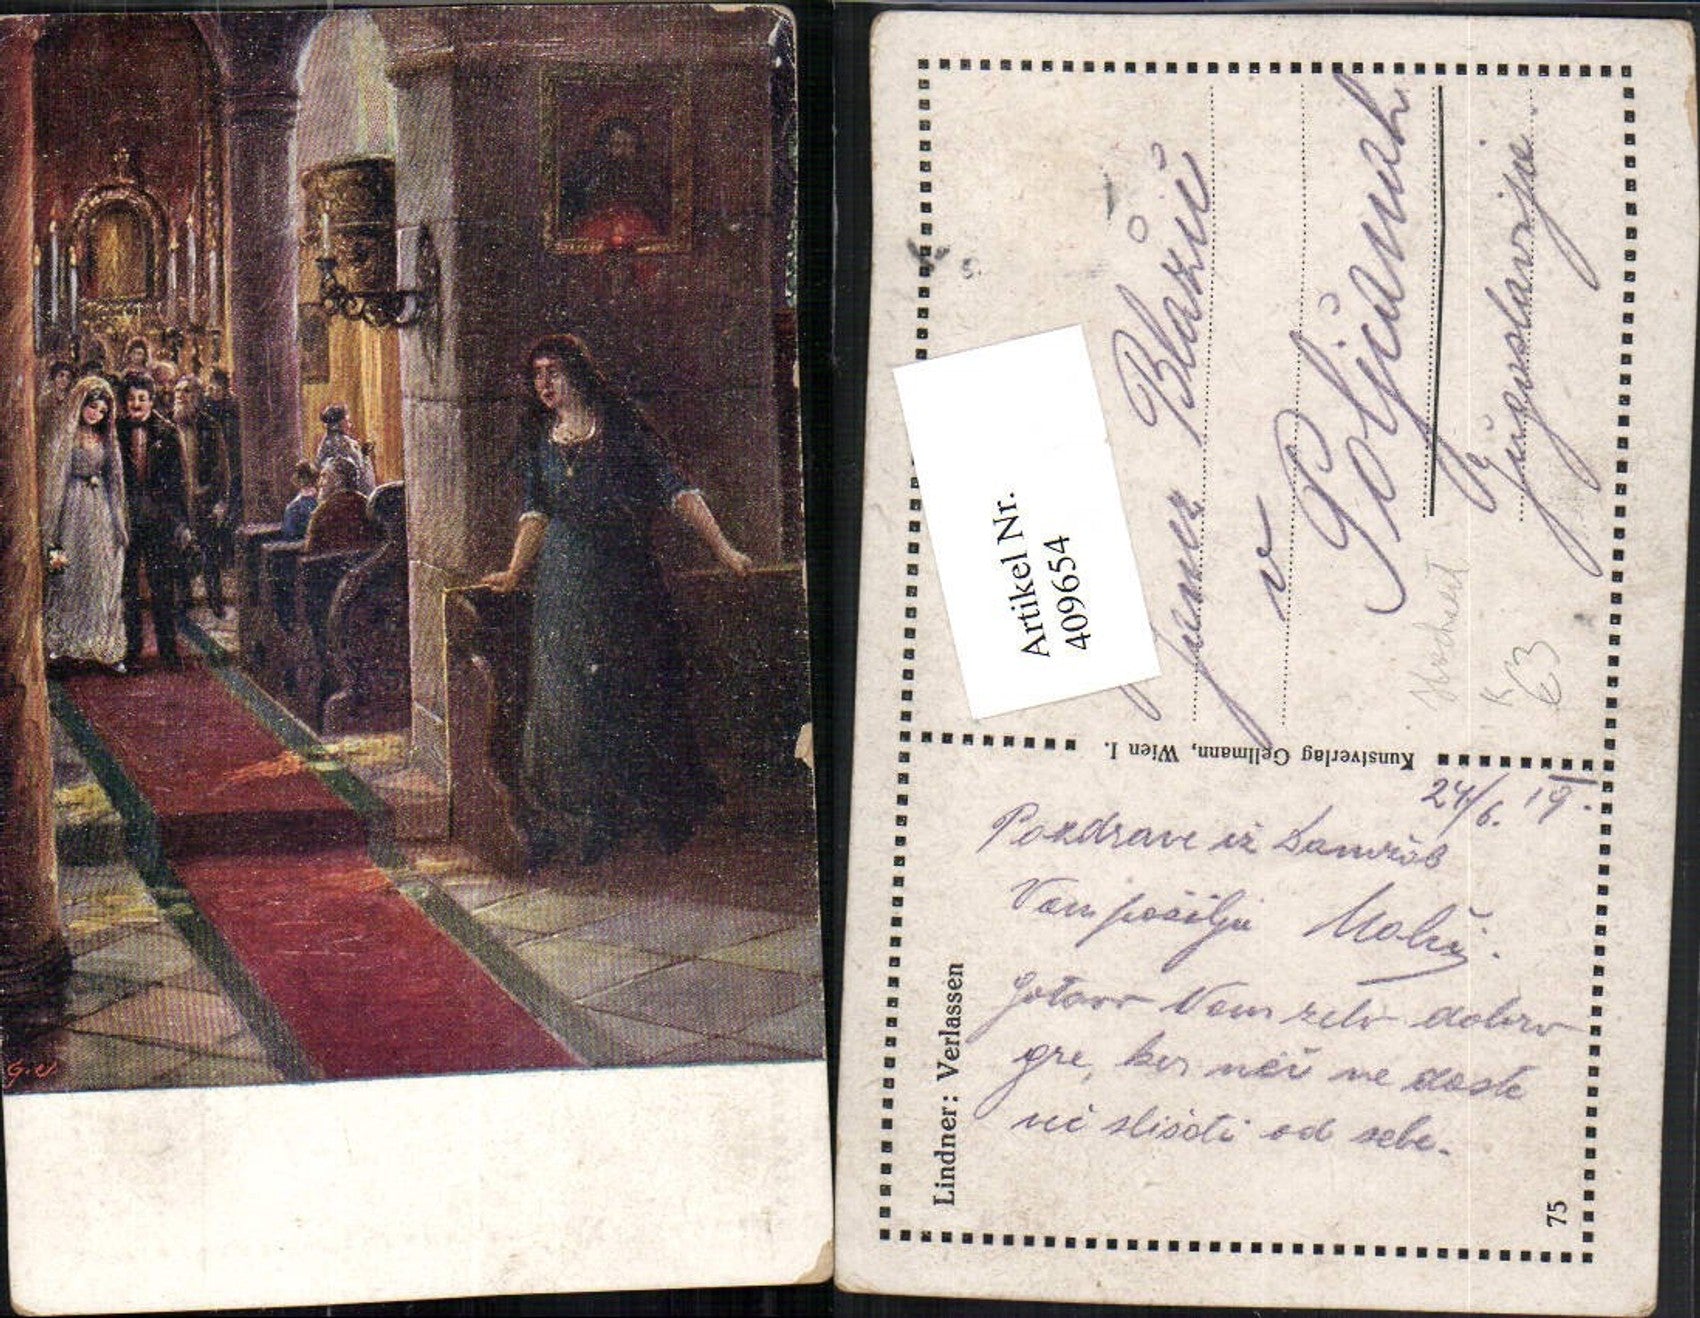 G.W.
Artikel Nr.
409654
Janez Blažič
v
Poljčanah
Jugoslavija
Hochzeit
K
63
Kunstverlag Gellmann, Wien I.
24/6. 19.
Pozdrave iz
Vam pošilja
Gotovo Vam zelo dobro
gre, ker nič ne daste
nič slišati od sebe.
Lindner: Verlassen
75